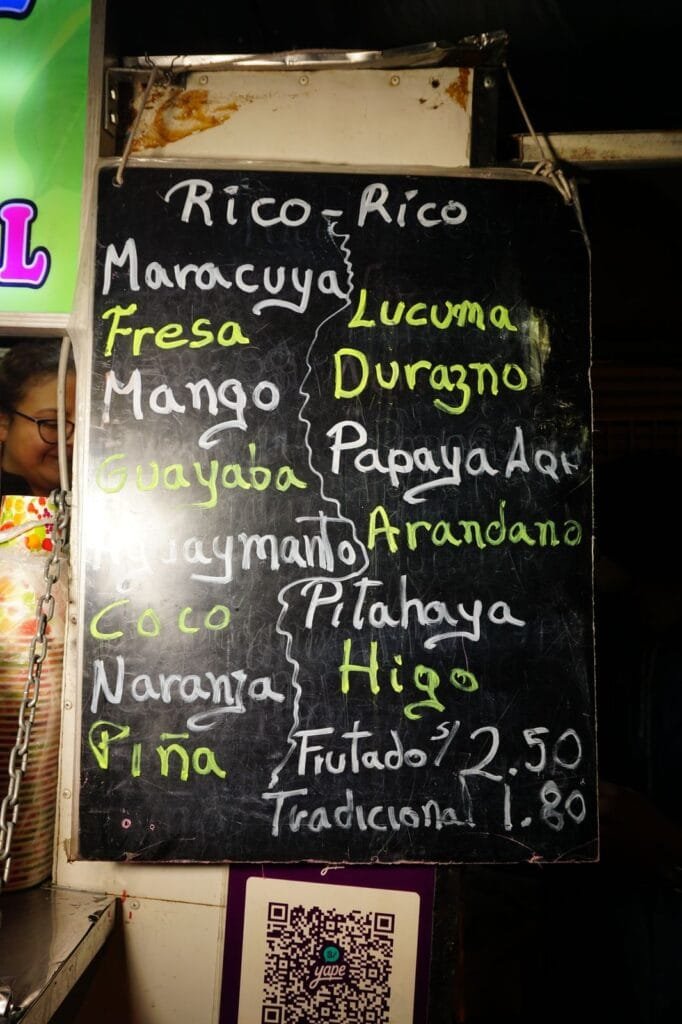 L
Rico-Rico
Maracuya
Fresa
Mango
Guayaba
Aguaymanto
Coco
Naranja
Piña
Lucuma
Durazno
Papaya
Arandano
Pitahaya
Higo
Frutado S/ 2.50
Tradicional 1.80
yape